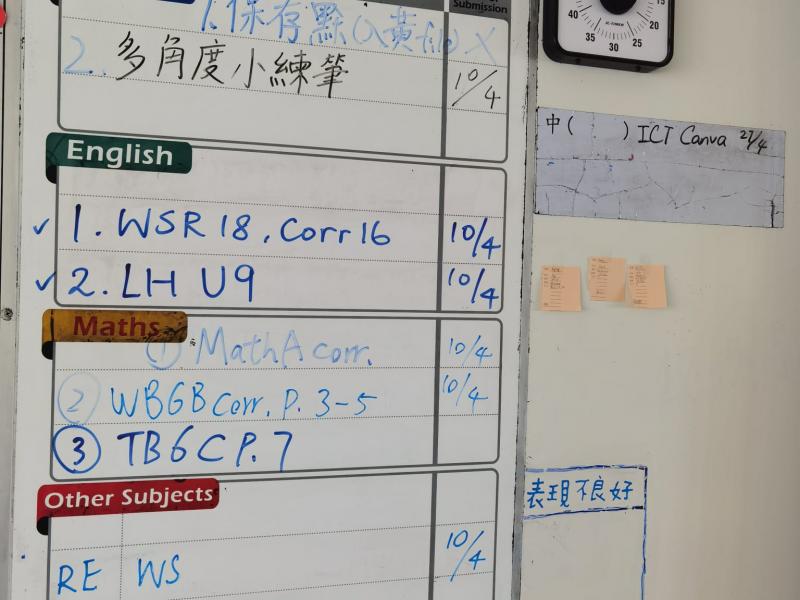 Submission
1. 保存點(入黃file) X
2. 多角度小練筆 10/4
English
✓ 1. WSR 18, Corr 16 10/4
✓ 2. LH U9 10/4
Maths
① Math A corr. 10/4
② WB6B Corr. P. 3-5 10/4
③ TB6C P. 7
Other Subjects
RE WS 10/4
40 35 30 25 20 15
中( ) ICT Canva 27/4
表現不良好